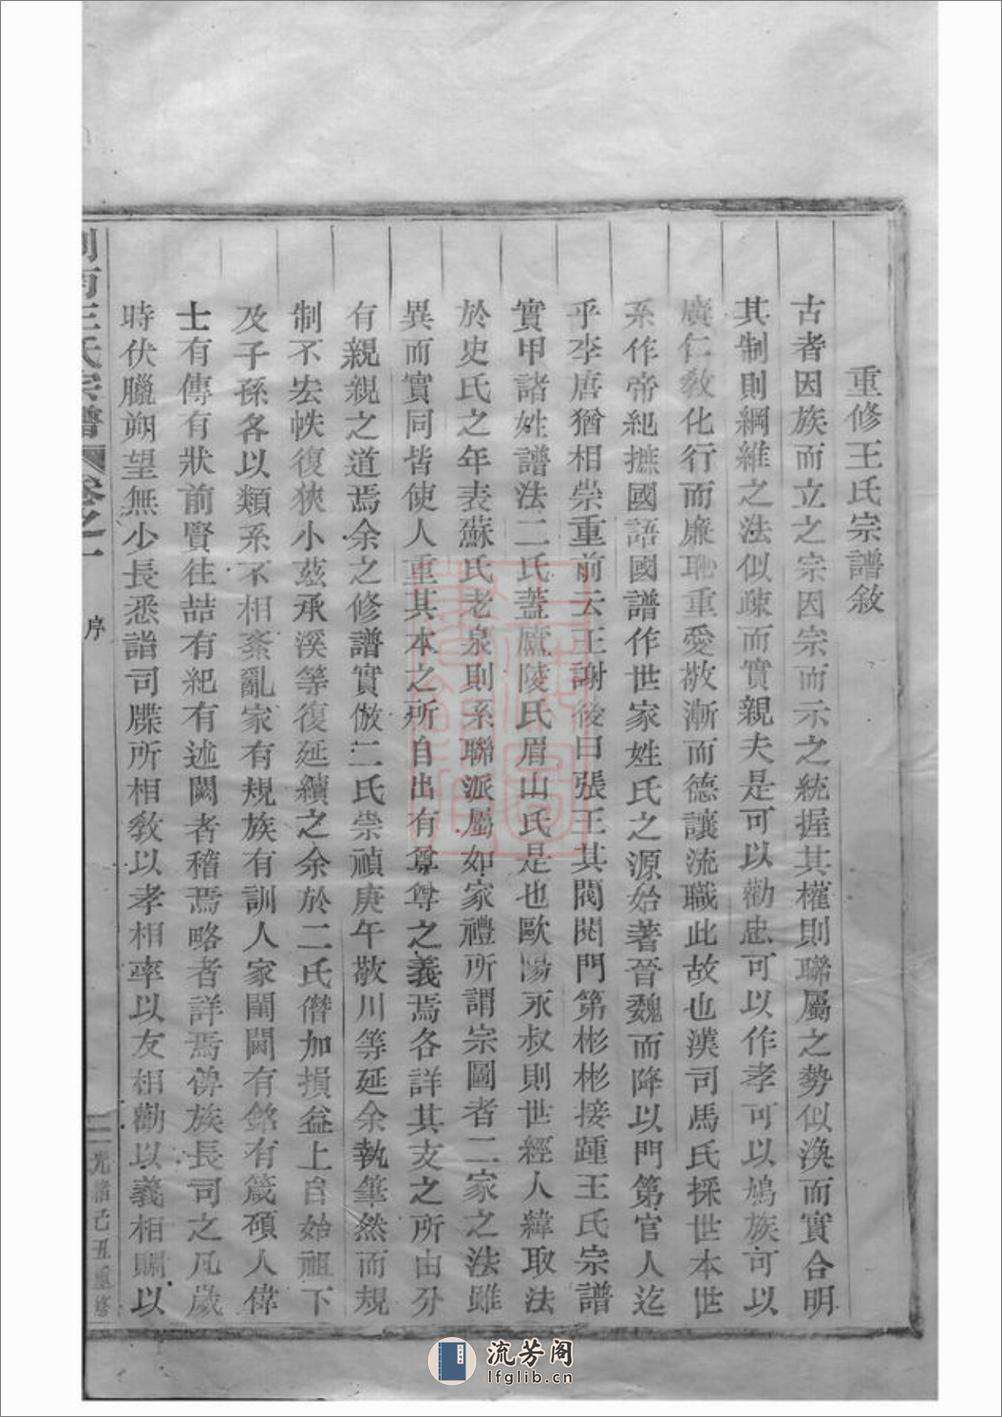 重修王氏宗譜敘
古者因族而立之宗因宗而示之統握其權則聯屬之勢似渙而實合明
其制則綱維之法似疎而實親夫是可以勸忠可以作孝可以鳩族可以
廣仁教化行而廉恥重愛敬漸而德讓流職此故也漢司馬氏採世本世
系作帝紀摭國語國譜作世家姓氏之源始著晉魏而降以門第官人迄
乎李唐猶相崇重前云王謝後曰張王其閥閱門第彬彬接踵王氏宗譜
實甲諸姓譜法二氏蓋廬陵氏眉山氏是也歐陽永叔則世經人緯取法
於史氏之年表蘇氏老泉則系聯派屬如家禮所謂宗圖者二家之法雖
異而實同皆使人重其本之所自出有尊尊之義焉各詳其支之所由分
有親親之道焉余之修譜實倣二氏崇禎庚午敬川等延余執筆然而規
制不宏帙復狹小茲承溪等復延續之余於二氏僭加損益上自始祖下
及子孫各以類系不相紊亂家有規族有訓人家閨閫有銘有箴碩人偉
士有傳有狀前賢往喆有紀有述闕者稽焉略者詳焉俾族長司之凡歲
時伏臘朔望無少長悉詣司牒所相敎以孝相率以友相勸以義相賙以
南王氏宗譜 卷之一 序 二 光緒己丑重修
流芳阁
lfglib.cn